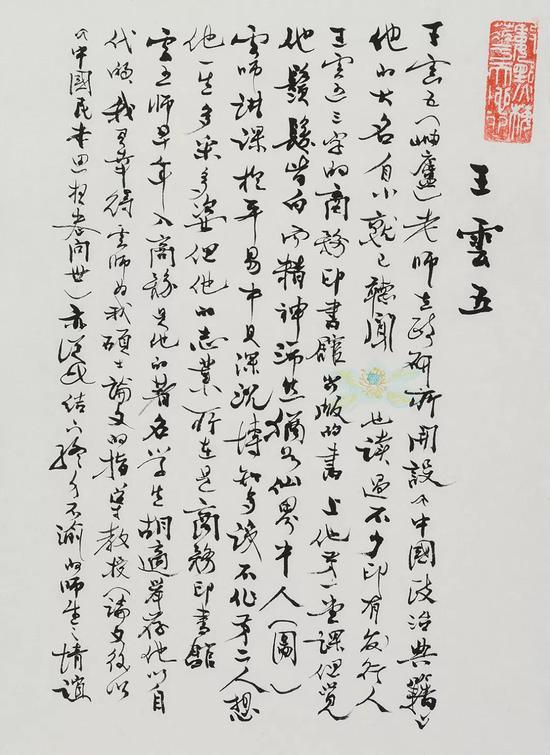 王雲五
王雲五(岫廬)老師在政研所開設《中國政治典籍》
他的大名自小就已聽聞 也讀過不少印有發行人
王雲五三字的商務印書館出版的書 上他第一堂課但覺
他鬚髮皆白而精神沛然猶如仙界中人(圖)
雲師講課於平易中見深沉博智多識不作第二人想
他一生多采多姿但他的志業所在是商務印書館
雲五師早年入商務是他的著名學生胡適舉荐他以自
代的 我有幸得雲師為我碩士論文的指導教授(論文後以
《中國民本思想史》問世)亦從此結下終身不渝的師生之情誼